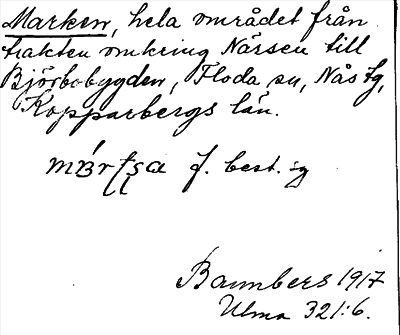 Marken, hela området från
trakten omkring Närsen till
Björbobygden, Floda sn, Nås tg,
Kopparbergs län.
f. best. sg
1917
Ulma 321:6.